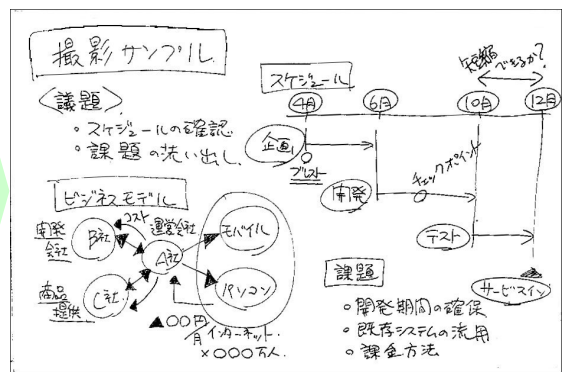 撮影サンプル
<議題>
・スケジュールの確認
・課題の洗い出し
ビジネスモデル
コスト
開発会社
B社
運営会社
A社
モバイル
パソコン
商品提供
C社
▲〇〇円/月
インターネット
×〇〇〇万人
スケジュール
短縮できるか?
4月 6月 10月 12月
企画
ブレスト
開発
チェックポイント
テスト
サービスイン
課題
・開発期間の確保
・既存システムの流用
・課金方法